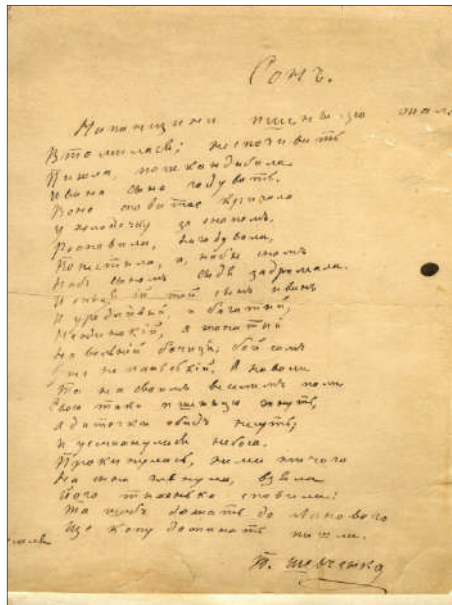 Сонъ.
На панщини пшеныцю жала
Втомилася; не спочивать
Пишла, пошкандибала
Ивана сына годувать.
Воно сповитее кричало
у холодочку за снопомъ,
Росповила, нагодувала,
Попестыла, а, ныбы сномъ
Надъ сыномъ сыдя задримала.
И снився ій той сынъ Иванъ
И уродлывый, и богатый,
Не одинокій, а жонатый
На вольній бачиця, бо й самъ
Уже не панській. А на воли
Та на своимъ веселимъ поли
Свою таки пшыныцю жнуть,
А диточки обидъ несуть,
И усмихнулася небога.
Прокинулась, нема ничого
На глянула, взяла
Його тихенько сповила:
Та щобъ дожать до ланового
Ще копу дожинать пишла.
Т. Шевченко